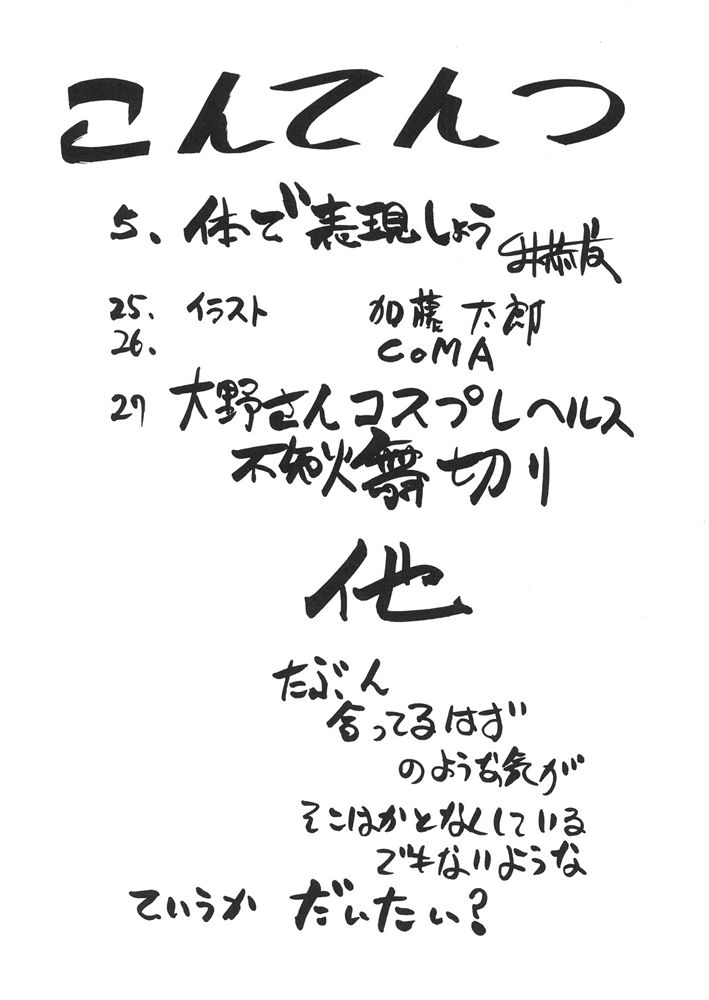 こんてんつ
5、体で表現しよう
25. イラスト 加藤 太郎
26. CoMA
27 大野さんコスプレヘルス
不知火舞切り
他
たぶん
合ってるはず
のような気が
そこはかとなくしている
でもないような
ていうか だいたい?